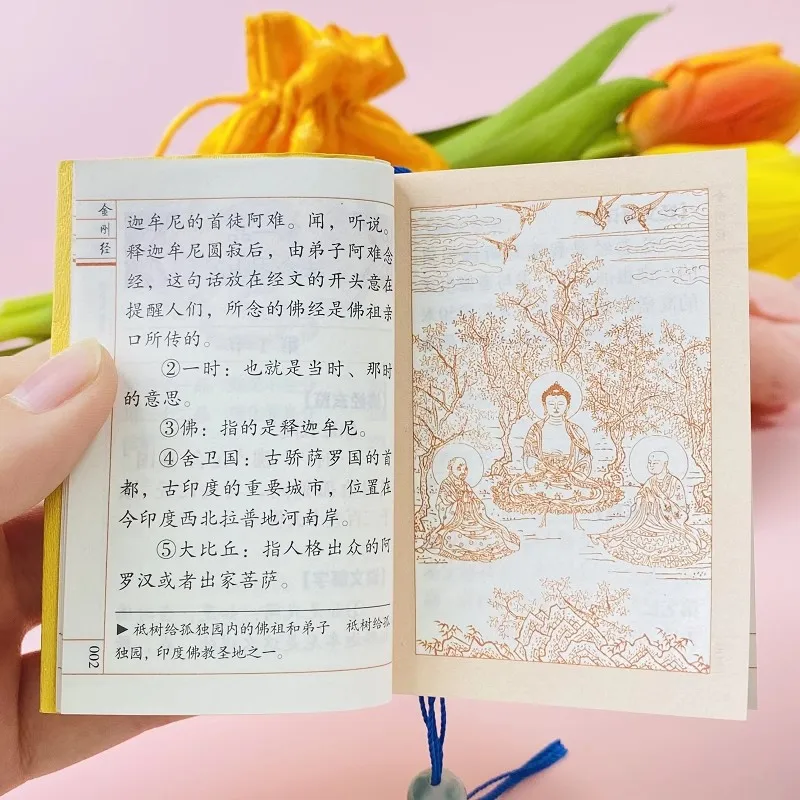 金刚经
迦牟尼的首徒阿难。闻，听说。
释迦牟尼圆寂后，由弟子阿难念
经，这句话放在经文的开头意在
提醒人们，所念的佛经是佛祖亲
口所传的。
②一时：也就是当时、那时
的意思。
③佛：指的是释迦牟尼。
④舍卫国：古骄萨罗国的首
都，古印度的重要城市，位置在
今印度西北拉普地河南岸。
⑤大比丘：指人格出众的阿
罗汉或者出家菩萨。
▶祗树给孤独园内的佛祖和弟子　祗树给孤
独园，印度佛教圣地之一。
002